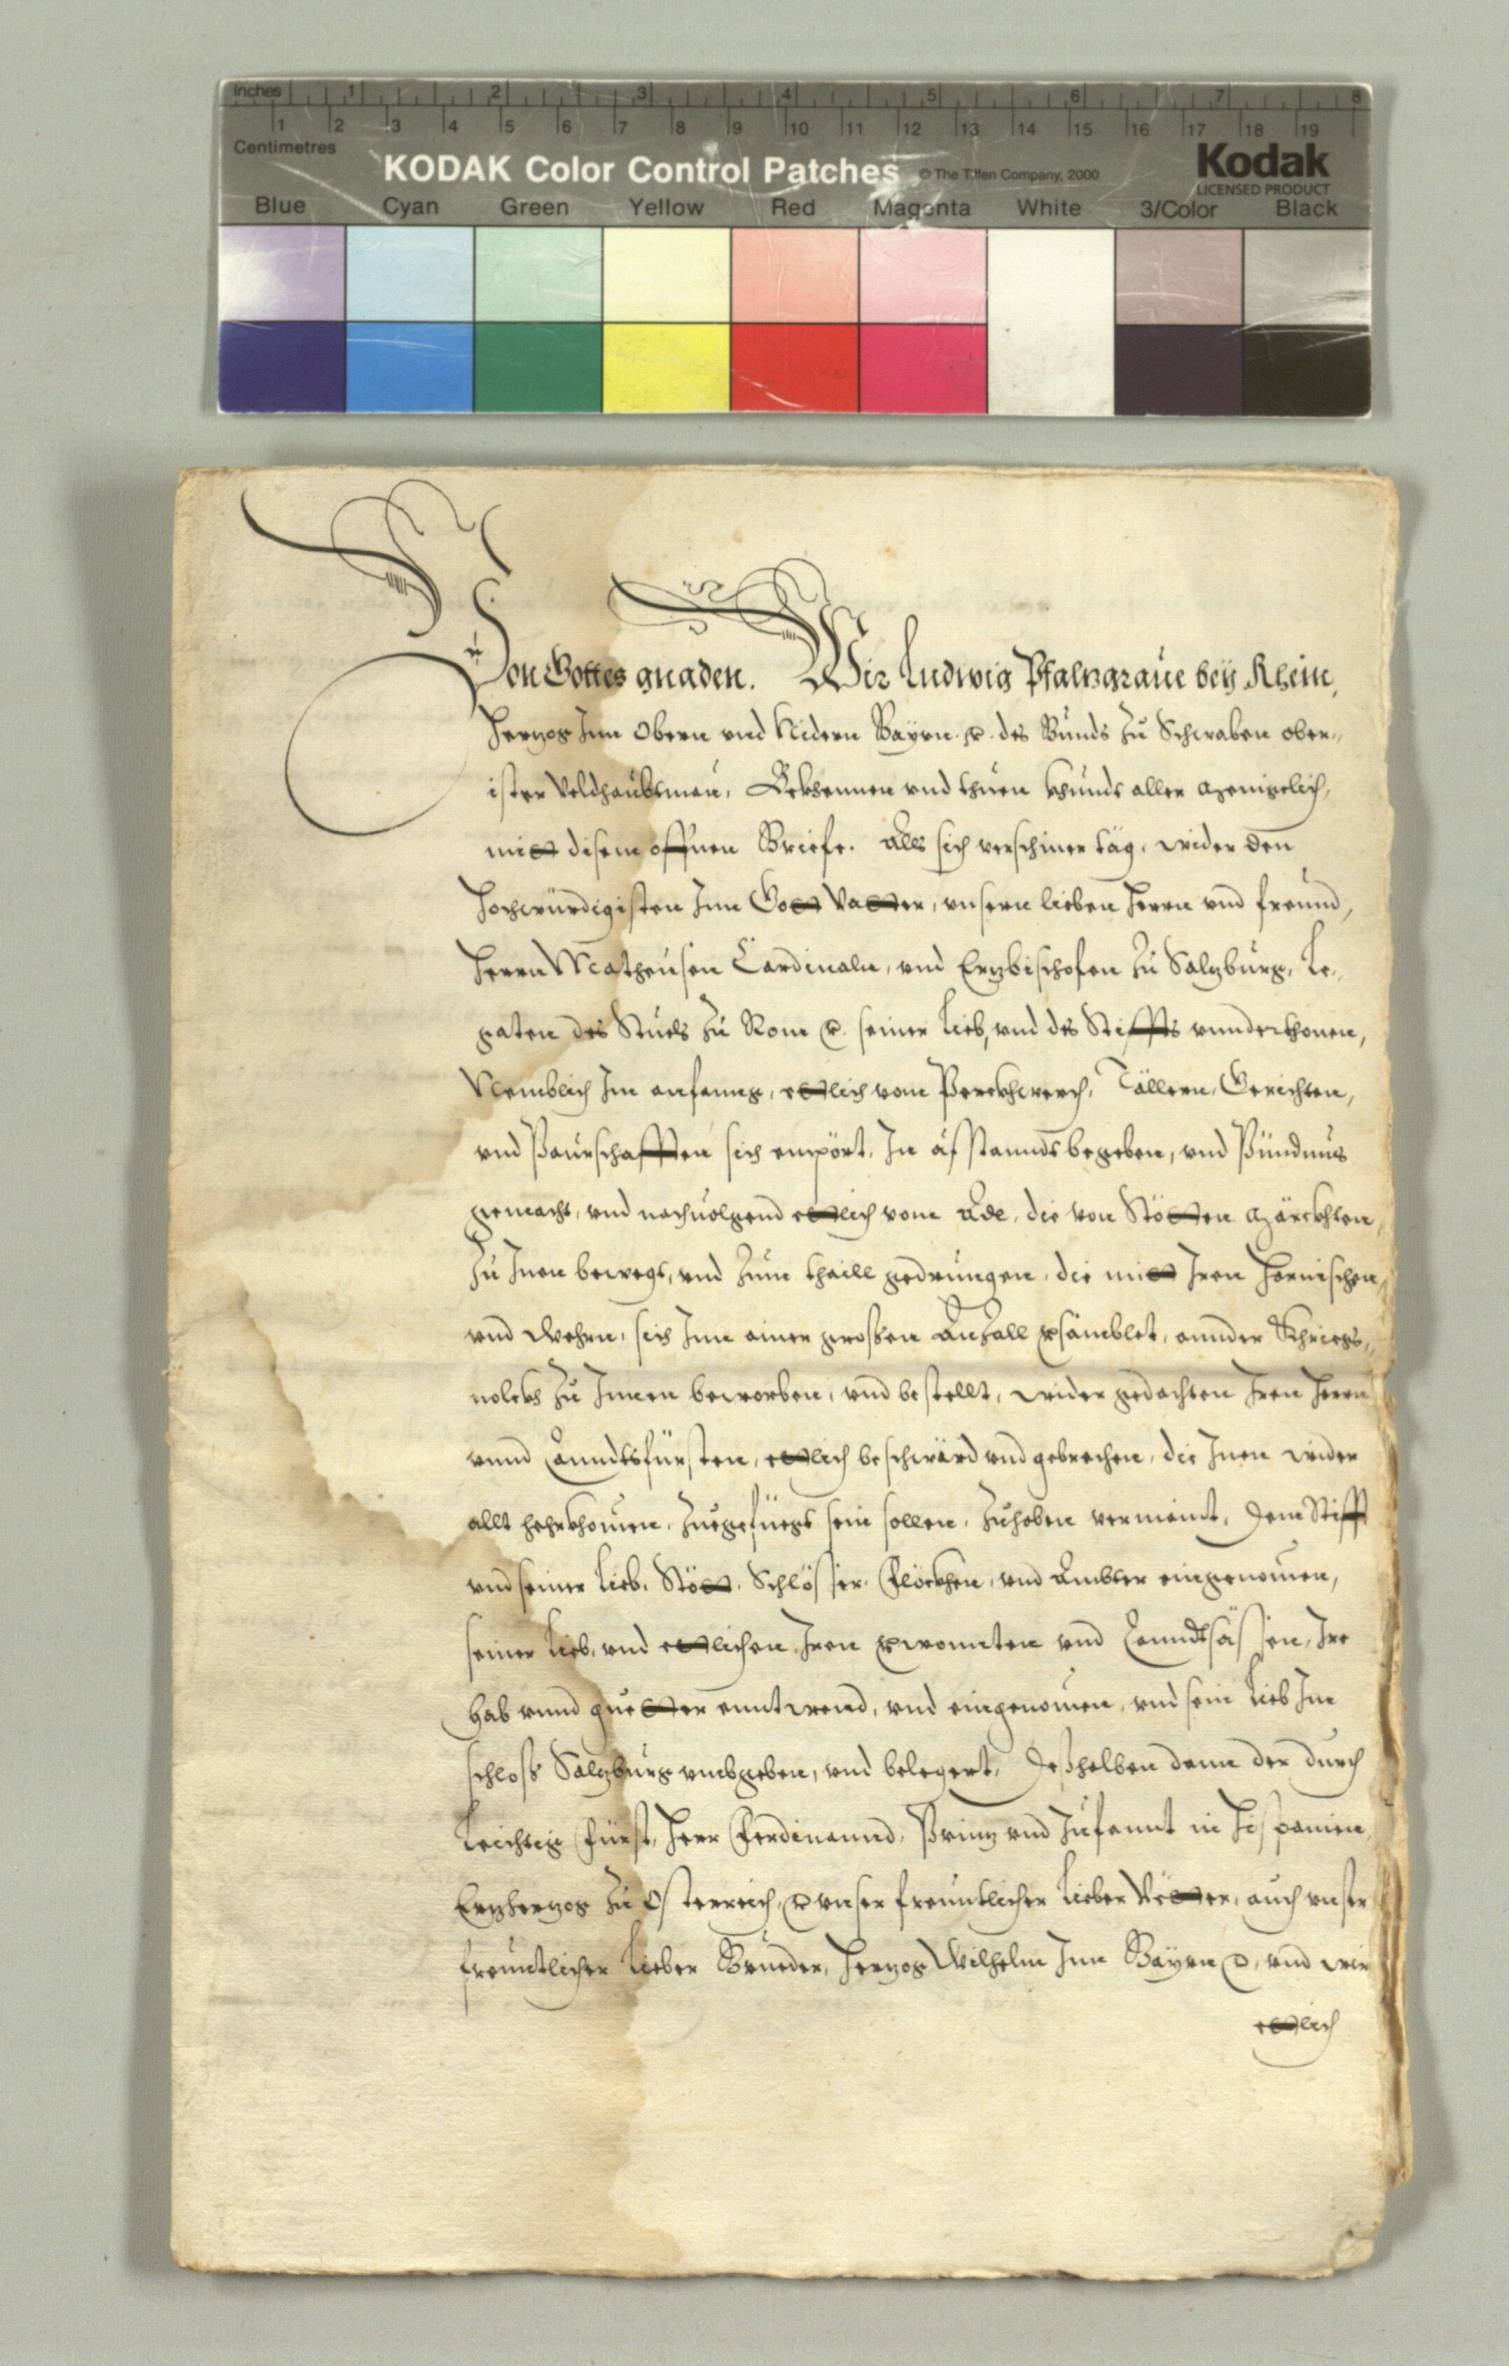 Inches 1 2 3 4 5 6 7 8
1 2 3 4 5 6 7 8 9 10 11 12 13 14 15 16 17 18 19
Centimetres
KODAK Color Control Patches © The Tiffen Company, 2000 Kodak
LICENSED PRODUCT
Blue Cyan Green Yellow Red Magenta White 3/Color Black
Von Gottes gnaden. Wir Ludwig Pfalnzgraue beÿ Rhein,
Herzog Inn Obern vnd Nidern Bayrn .r. des Bunds zu Schwaben ober„
ister Veldhaubtman, Bekhennen vnd thuen khundt aller menigclich,
mitt disem offnen Briefe. Alls sich verschiner täg, wider den
hochwürdigisten Inn Gott Vatter, vnsern lieben Herrn vnd freund,
Herrn Matheusen Cardinaln, vnd Erzbischofen zu Salzburg, Le„
gaten des Stuels zu Rom r. seiner Lieb, vnd des Stiffts vnnderthonen,
Nemblich Im anfanng, ettlich vom Perckhwerch, Tällern, Gerichten,
vnd Paurschafften sich empört, In afstanndt begeben, vnd Pündnus
gemacht, vnd nachuolgend ettlich vom Adl, die von Stötten Märckhten,
zu Inen bewegt, vnd zum thaill gedrungen, die mitt Iren Hernischen,
vnd Wehrn, sich Inn ainer grossen Anzall versamblet, annder Khriegs„
uolckh zu Innen beworben, vnd bestellt, wider gedachten Iren Herrn
vnnd Lanndtsfürsten, ettlich beschwärd vnd gebrechen, die Inen wider
allt herkhomen, zuegefüegt sein sollen, zuhaben vermaint, Dem Stifft
vnd seiner Lieb, Stött, Schlösser, Flöckhen, vnd Ambter eingenomen,
seiner Lieb, vnd ettlichen Iren verwonnten vnd Lanndtsässen, Ire
Hab vnnd guetter enntwend, vnd eingenomen, vnd sein Lieb Im
schloss Salzburg vmbgeben, vnd belegert, Deßhalben dann der durch
leichtig Fürst, Herr Ferdinannd, Prinz vnd Infannt in Hispanien,
Erzherzog zu Osterreich, r. vnser freuntlicher Lieber Vetter, auch vnser
freuntlicher Lieber Brueder, Herzog Wilhelm Inn Bayrn r. vnd wir
ettlich